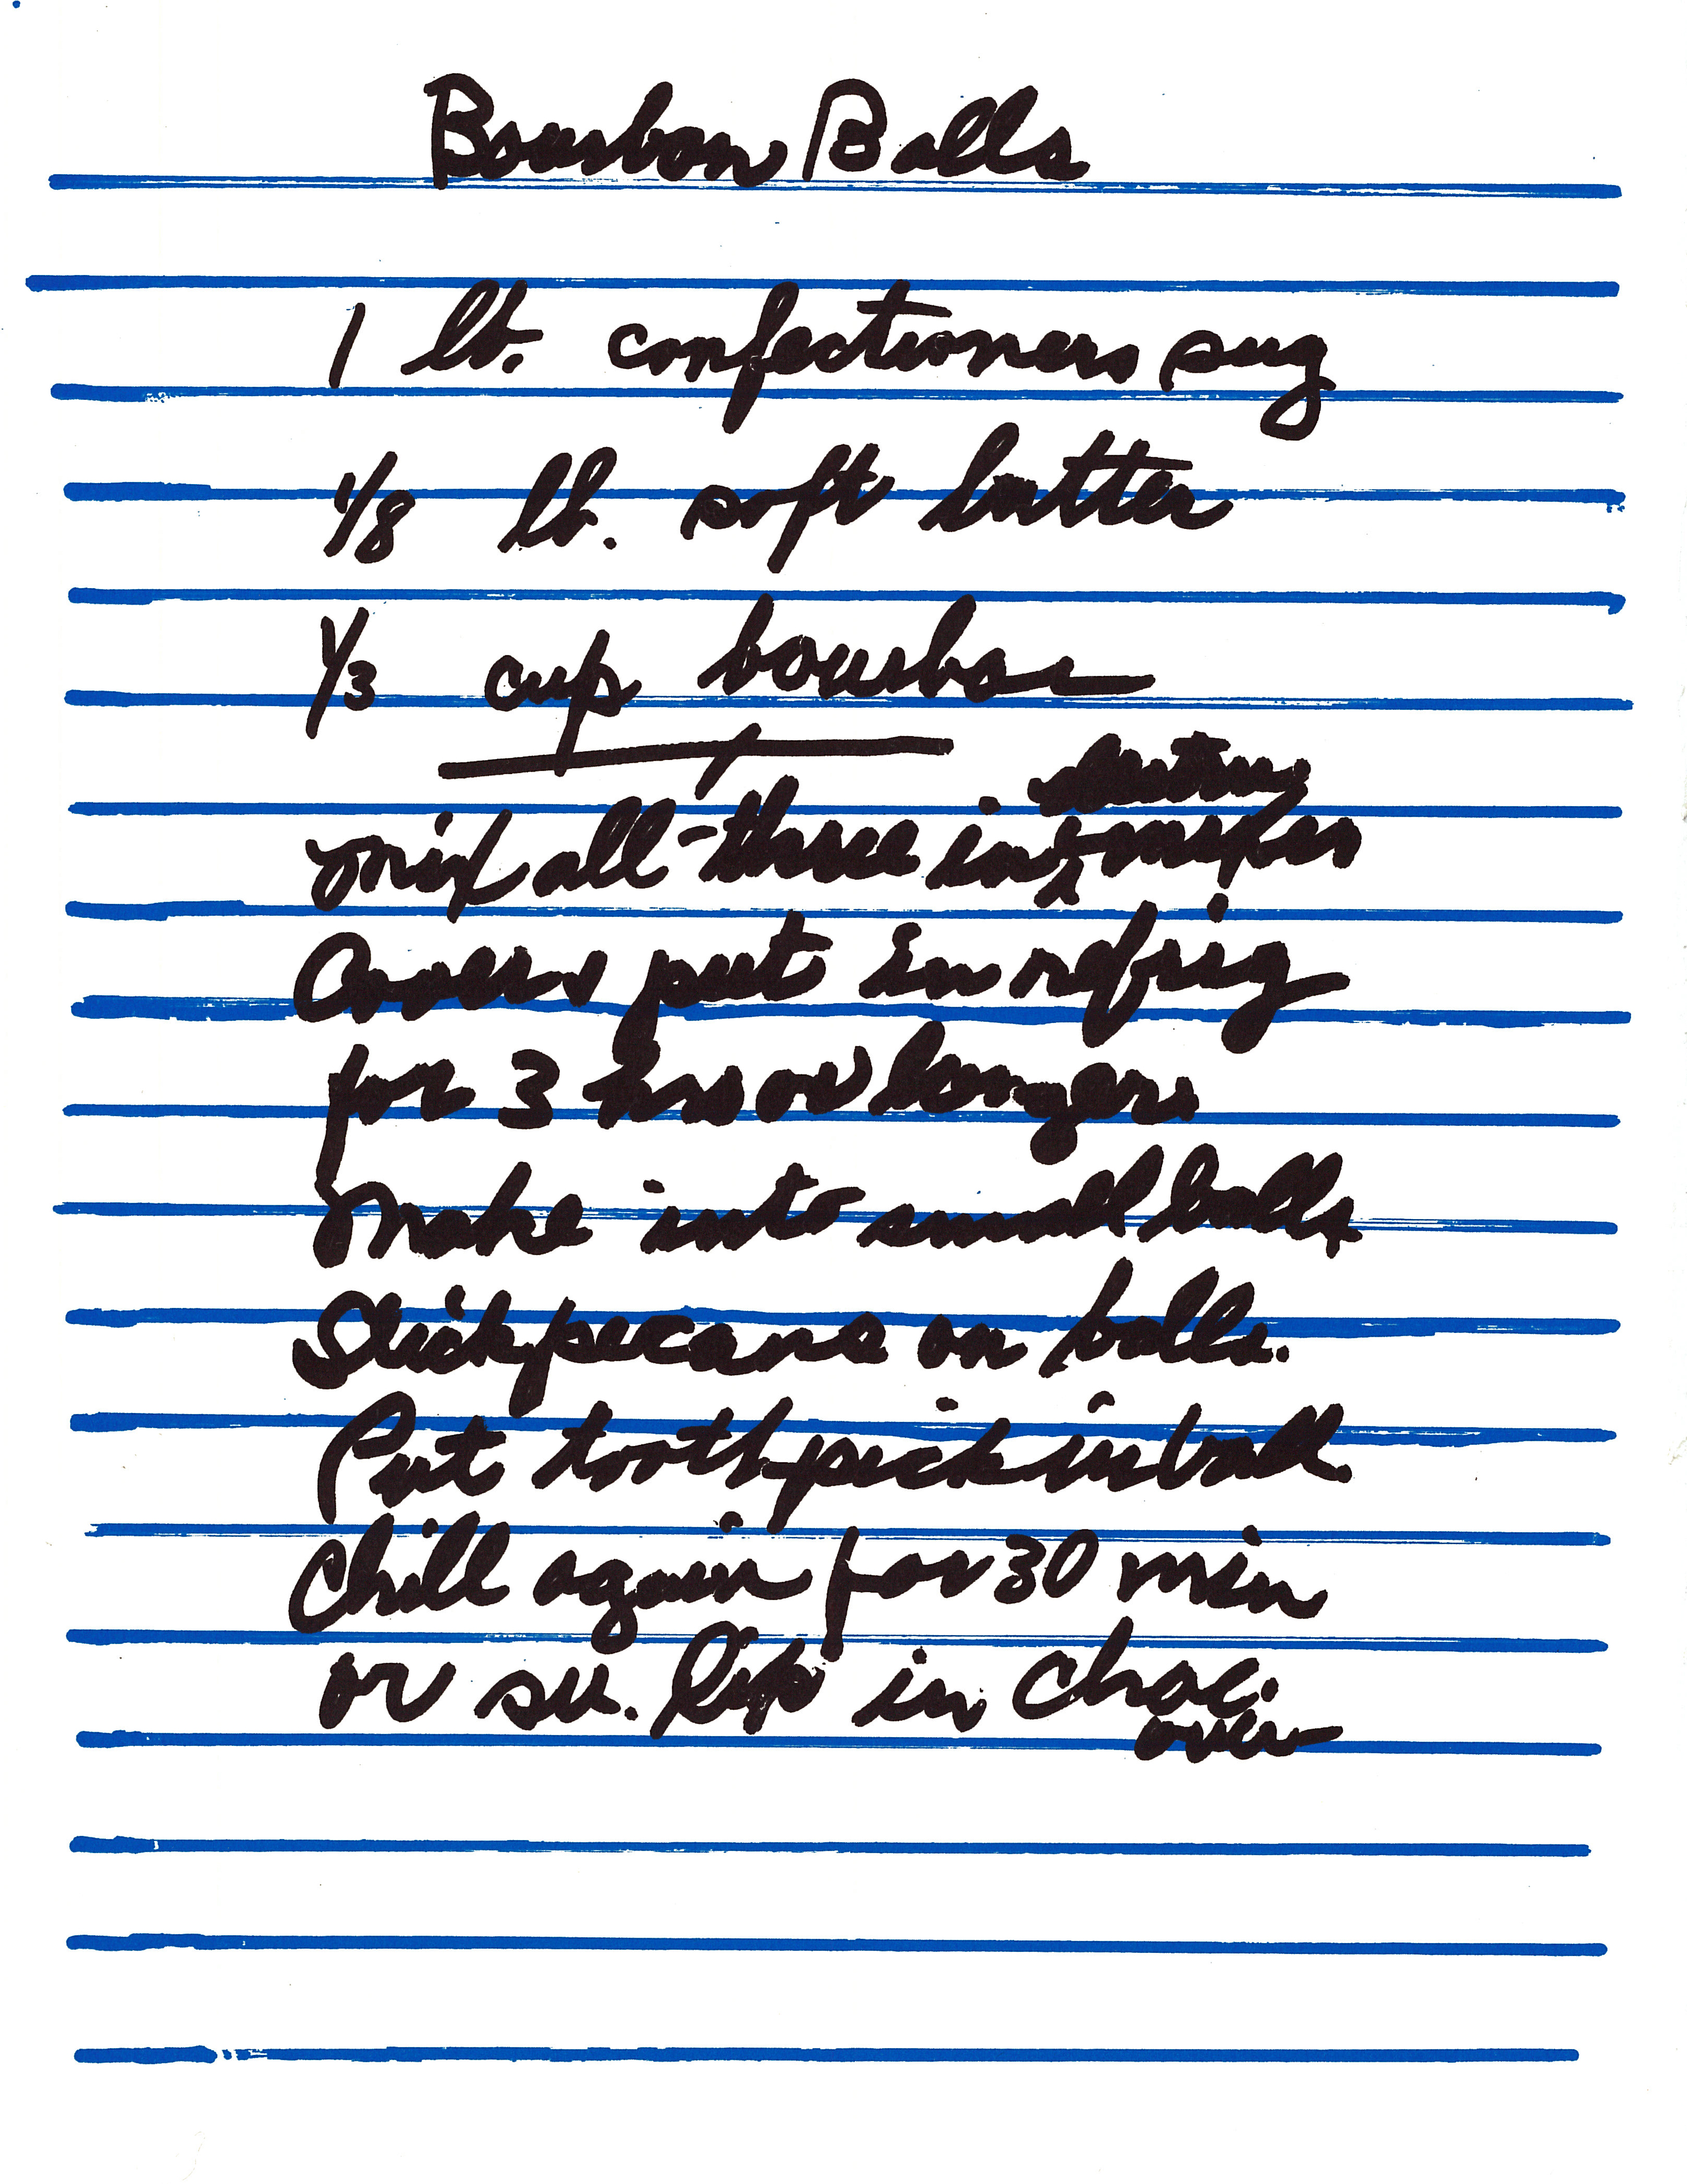 Bourbon Balls
1 lb. confectioners sug
1/8 lb. soft butter
1/3 cup bourbon
electric
mix all three in mixer
Cover put in refrig
for 3 hrs or longer.
Make into small balls
Stick pecans on balls.
Put toothpick in ball.
Chill again for 30 min
or so. Dip in choc.
over